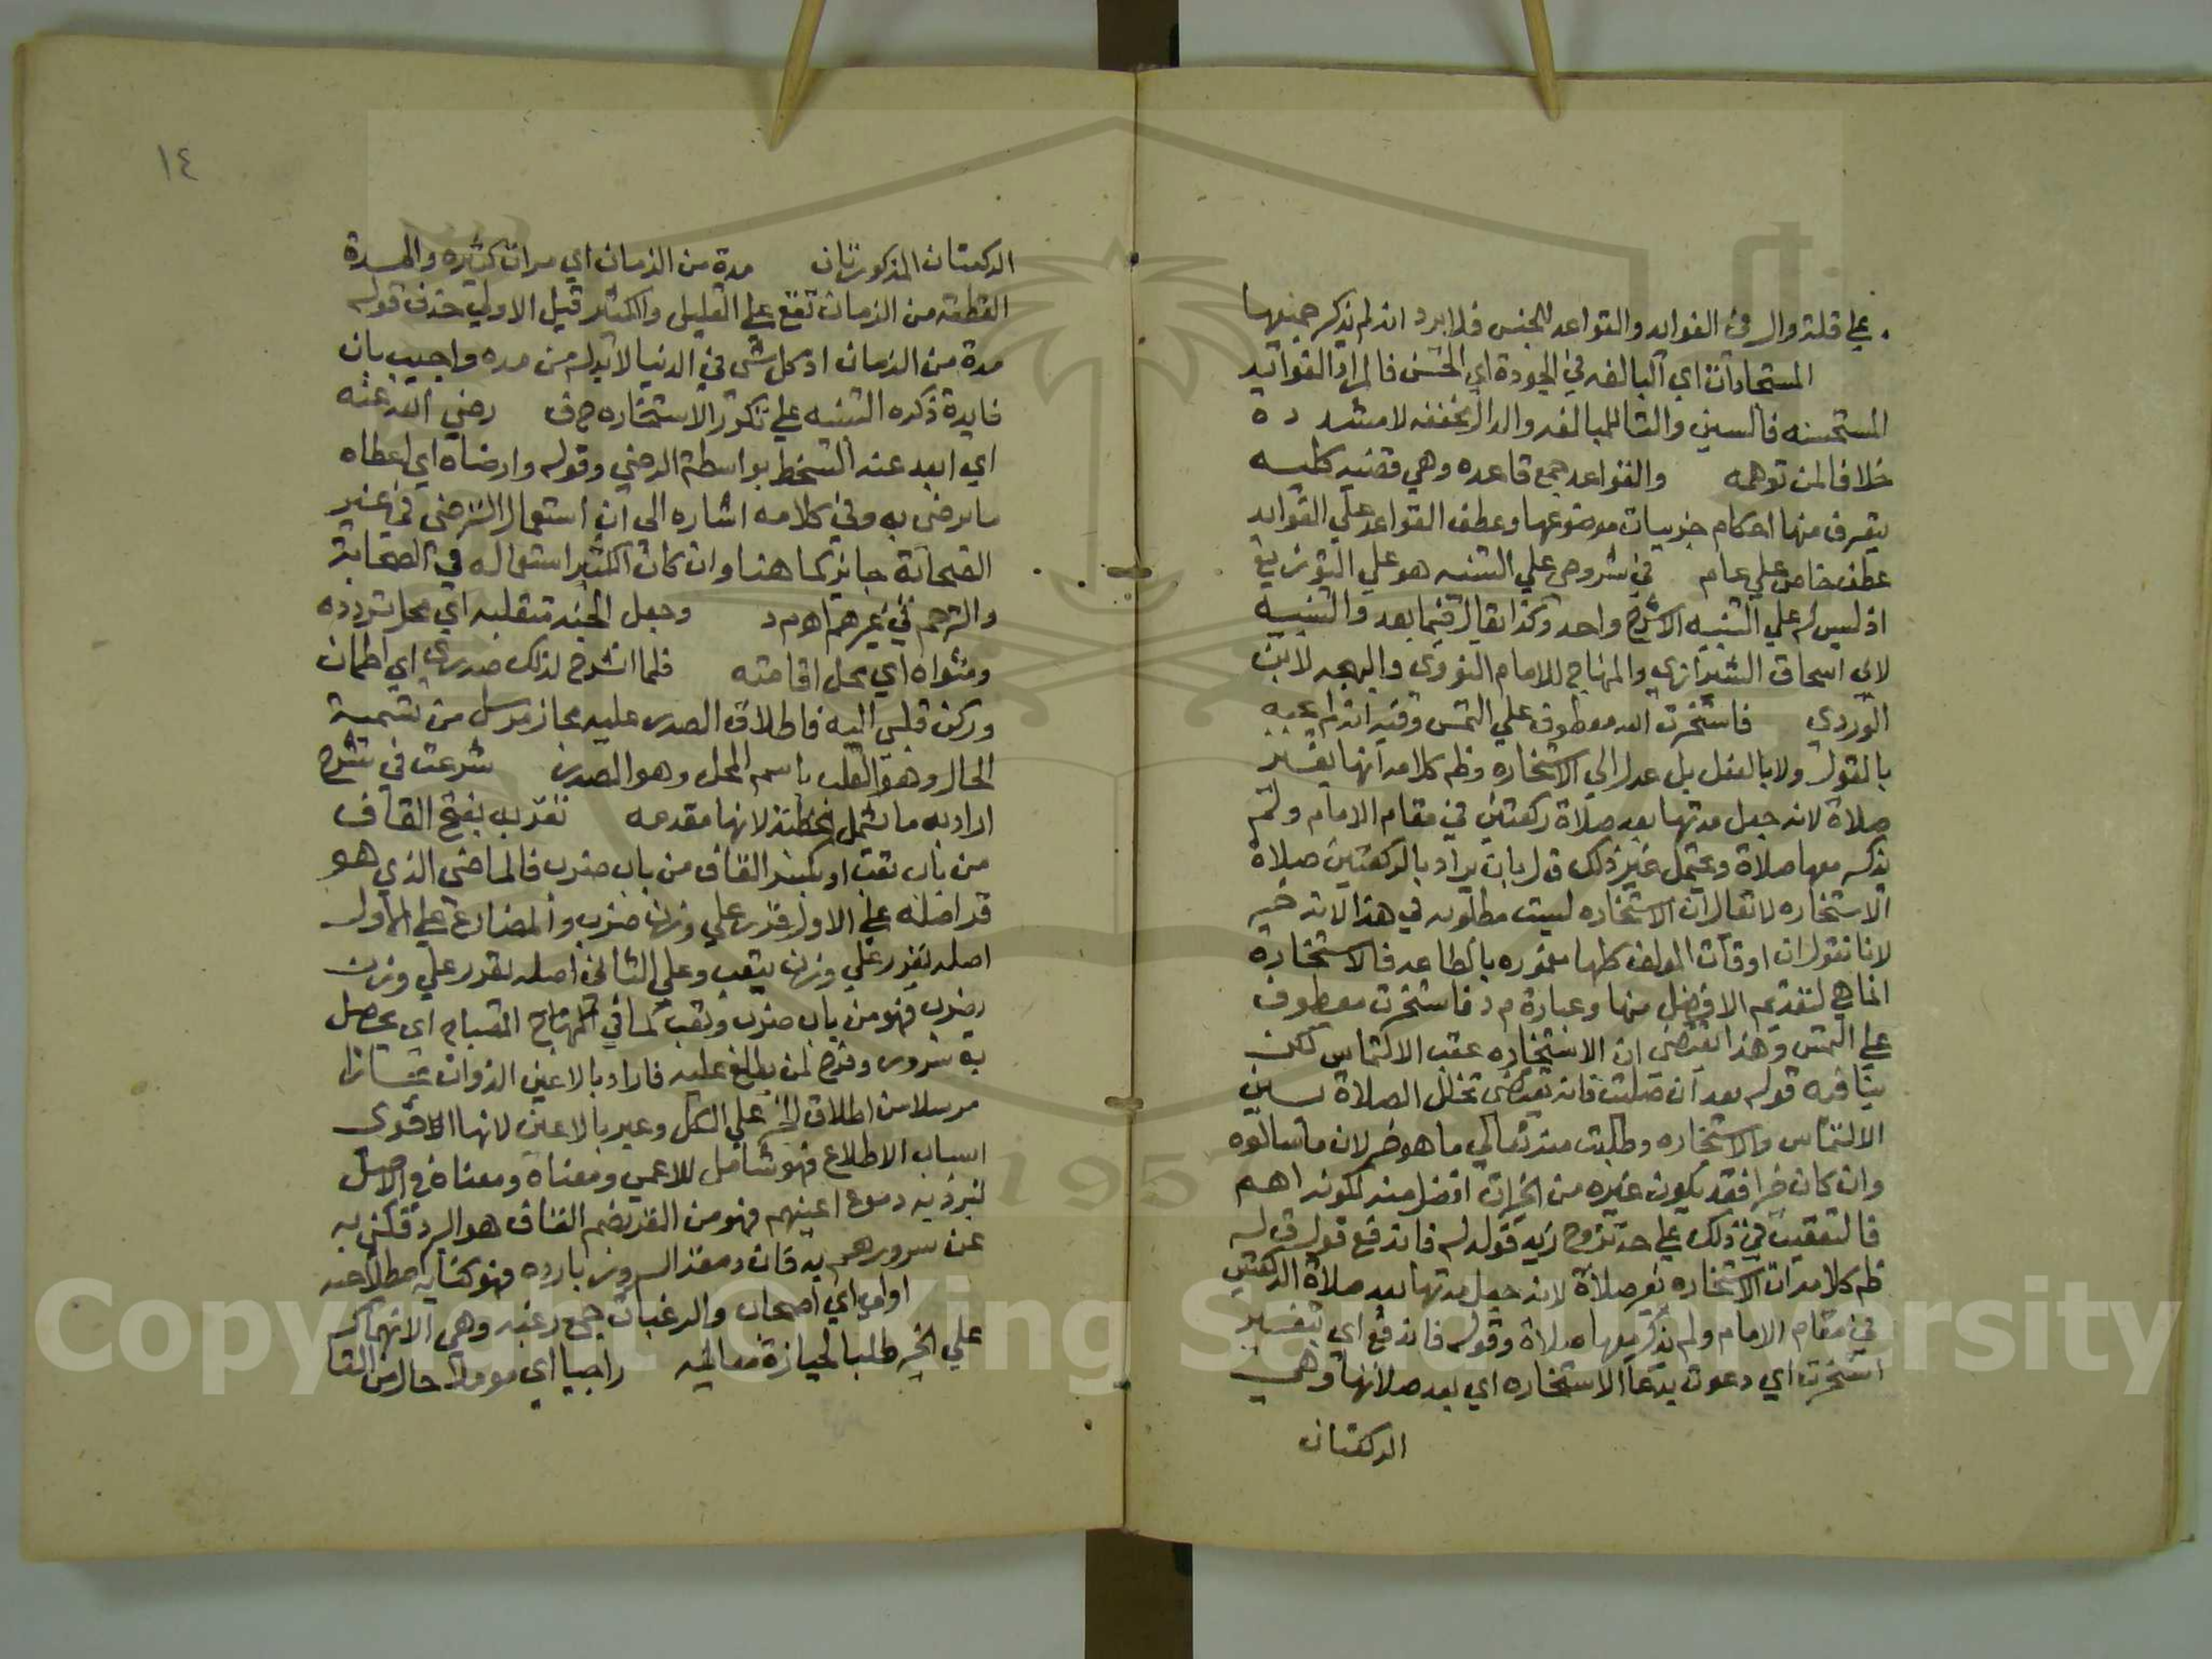 علي قلة وال في الفوايد والقواعد للجنس فلا يرد انه لم يذكر جميعها
المستجادات اي البالغه في الجودة اي الحسن فالمراد الفوايد
المستحسنه فالسين والتا للمبالغه والدال مخففه لا مشدده
خلافا لمن توهمه والقواعد جمع قاعده وهي قضيه كليه
يتعرف منها احكام جزييات موضوعها وعطف القواعد علي الفوايد
عطف خاص علي عام في شروحي علي التنبيه هو علي التوزيع
اذ ليس له علي التنبيه الا شرح واحد وكذا يقال فيما بعد والتنبيه
لابي اسحاق الشيرازي والمنهاج للامام النووي والبهجه لابن
الوردي فاستخرت الله معطوف علي التمس وفيه انه لم يجبه
بالقول ولا بالفعل بل عدل الي الاستخاره وظم كلامه انها بغير
صلاة لانه جعل مدتها بعد صلاة ركعتين في مقام الامام ولم
يذكر معها صلاة ويحتمل غير ذلك ق ل بان يراد بالركعتين صلاة
الاستخاره لا يقال ان الاستخاره ليست مطلوبه في هذا لانه خير
لانا نقول ان اوقات المولف كلها معموره بالطاعه فالاستخارة
انما هي لتقديم الافضل منها وعبارة م د فاستخرت معطوف
علي التمس وهذا يقتضي ان الاستخاره عقب الالتماس لكن
ينافيه قوله بعد ان صليت فانه يقتضي تخلل الصلاة بين
الالتماس والاستخاره وطلبت منه تعالي ما هو خير لان ما سالوه
وان كان خيرا فقد يكون غيره من الخيرات افضل منه لكونه اهم
فالتعقيب في ذلك علي حد تزوج زيد فولد له فاندفع قول ق ل
ظم كلامه ان الاستخاره بغير صلاة لانه جعل مدتها بعد صلاة الركعتين
في مقام الامام ولم يذكر معها صلاة وقوله فاندفع اي بتفسير
استخرت اي دعوت بدعا الاستخاره اي بعد صلاتها وهي
الركعتان
١٤
الركعتان المذكورتان مدة من الزمان اي مرات كثيره والمدة
القطعه من الزمان تقع علي القليل والكثير قيل الاولي حذف قوله
مدة من الزمان اذ كل شي في الدنيا لا بد له من مده واجيب بان
فايدة ذكره التنبيه علي تكرر الاستخاره ح ف رضي الله عنه
اي ابعد عنه السخط بواسطة الرضي وقوله وارضاه اي اعطاه
ما يرضي به وفي كلامه اشاره الى ان استعمال الترضي في غير
الصحابة جايز كما هنا وان كان الكثير استعماله في الصحابة
والترحم في غيرهم اهـ م د وجعل الجنه متقلبه اي محل تردده
ومثواه اي محل اقامته فلما انشرح لذلك صدري اي اطمان
وركن قلبي اليه فاطلاق الصدر عليه مجاز مرسل من تسمية
الحال وهو القلب باسم المحل وهو الصدر شرعت في شرح
اراد به ما يشمل الخطبة لانها مقدمه تقر به بفتح القاف
من باب تعب او بكسر القاف من باب ضرب فالماضي الذي هو
قر اصله علي الاول قرر علي وزن ضرب والمضارع علي الاول
اصله تقرر علي وزن يتعب وعلي الثاني اصله تقرر علي وزن
يضرب فهو من باب ضرب وتعب كما في المصباح اي يحصل
به سرور وفرح لمن يطلع عليه فاراد بالاعين الذوات مجازا
مرسلا من اطلاق الجزء علي الكل وعبر بالاعين لانها الاقوى
اسباب الاطلاع فهو شامل للاعمي ومعناه في الاصل
تبرد به دموع اعينهم فهو من القر بضم القاف هو البرد فكني به
عن سرورهم به فان دمعة السرور بارده فهو كنايه اصطلاحيه
اولي اي اصحاب والرغبات جمع رغبه وهي الانهماك
علي الخير طلبا لحيازة معاليه راجيا اي موملا حال من التا